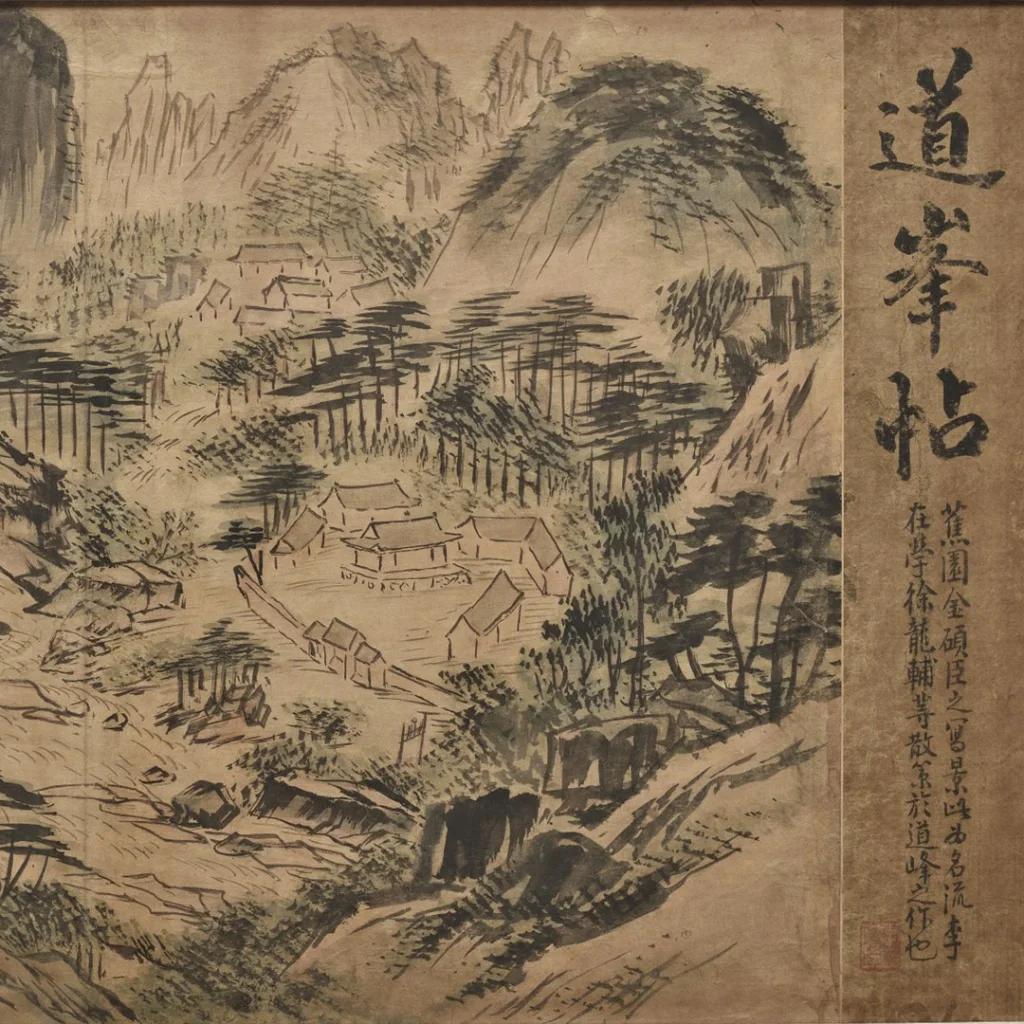 道峯帖
蕉園金碩臣之寫景此為名流李
在學徐龍輔等散策於道峰之作也